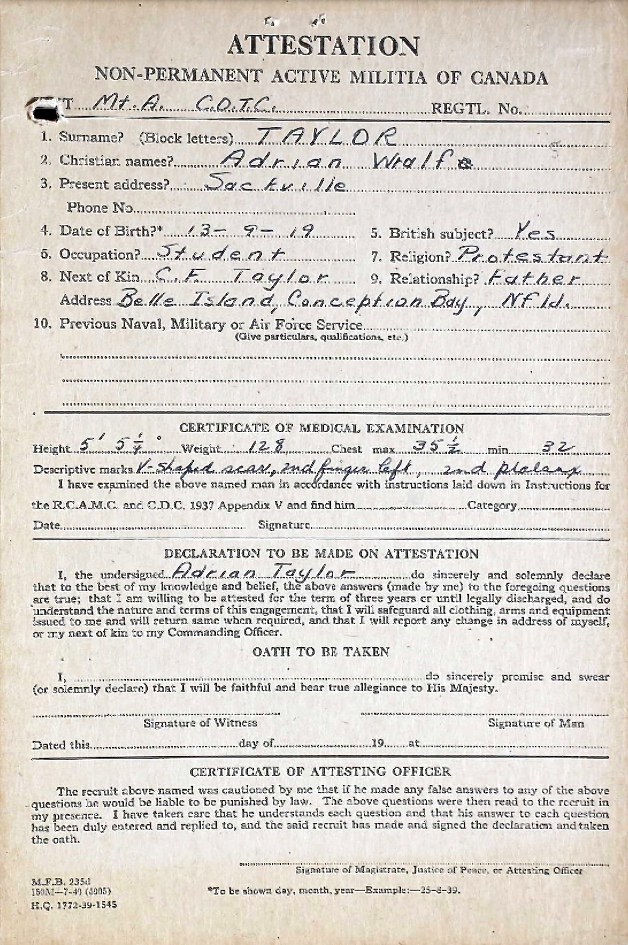 ATTESTATION
NON-PERMANENT ACTIVE MILITIA OF CANADA
Mt. A. C.O.T.C. REGTL. No.
1. Surname? (Block letters) TAYLOR
2. Christian names? Adrian
3. Present address? Sackville
Phone No.
4. Date of Birth?* 13-9-19 5. British subject? Yes
6. Occupation? Student 7. Religion? Protestant
8. Next of Kin C.F. Taylor 9. Relationship? Father
Address Belle Island, Conception Bay, Nfld.
10. Previous Naval, Military or Air Force Service
(Give particulars, qualifications, etc.)
CERTIFICATE OF MEDICAL EXAMINATION
Height 5' 5 1/4" Weight 128 Chest max 35 1/2 min 32
Descriptive marks V-shaped scar, 2nd finger left, 2nd phalanx
I have examined the above named man in accordance with instructions laid down in Instructions for
the R.C.A.M.C. and C.D.C. 1937 Appendix V and find him Category
Date Signature
DECLARATION TO BE MADE ON ATTESTATION
I, the undersigned Adrian Taylor do sincerely and solemnly declare
that to the best of my knowledge and belief, the above answers (made by me) to the foregoing questions
are true; that I am willing to be attested for the term of three years or until legally discharged, and do
understand the nature and terms of this engagement, that I will safeguard all clothing, arms and equipment
issued to me and will return same when required, and that I will report any change in address of myself,
or my next of kin to my Commanding Officer.
OATH TO BE TAKEN
I, do sincerely promise and swear
(or solemnly declare) that I will be faithful and bear true allegiance to His Majesty.
Signature of Witness Signature of Man
Dated this day of 19 at
CERTIFICATE OF ATTESTING OFFICER
The recruit above named was cautioned by me that if he made any false answers to any of the above
questions he would be liable to be punished by law. The above questions were then read to the recruit in
my presence. I have taken care that he understands each question and that his answer to each question
has been duly entered and replied to, and the said recruit has made and signed the declaration and taken
the oath.
Signature of Magistrate, Justice of Peace, or Attesting Officer
M.F.B. 235d
150M—7-40 (5005)
H.Q. 1772-39-1545
*To be shown day, month, year—Example:—25-8-39.